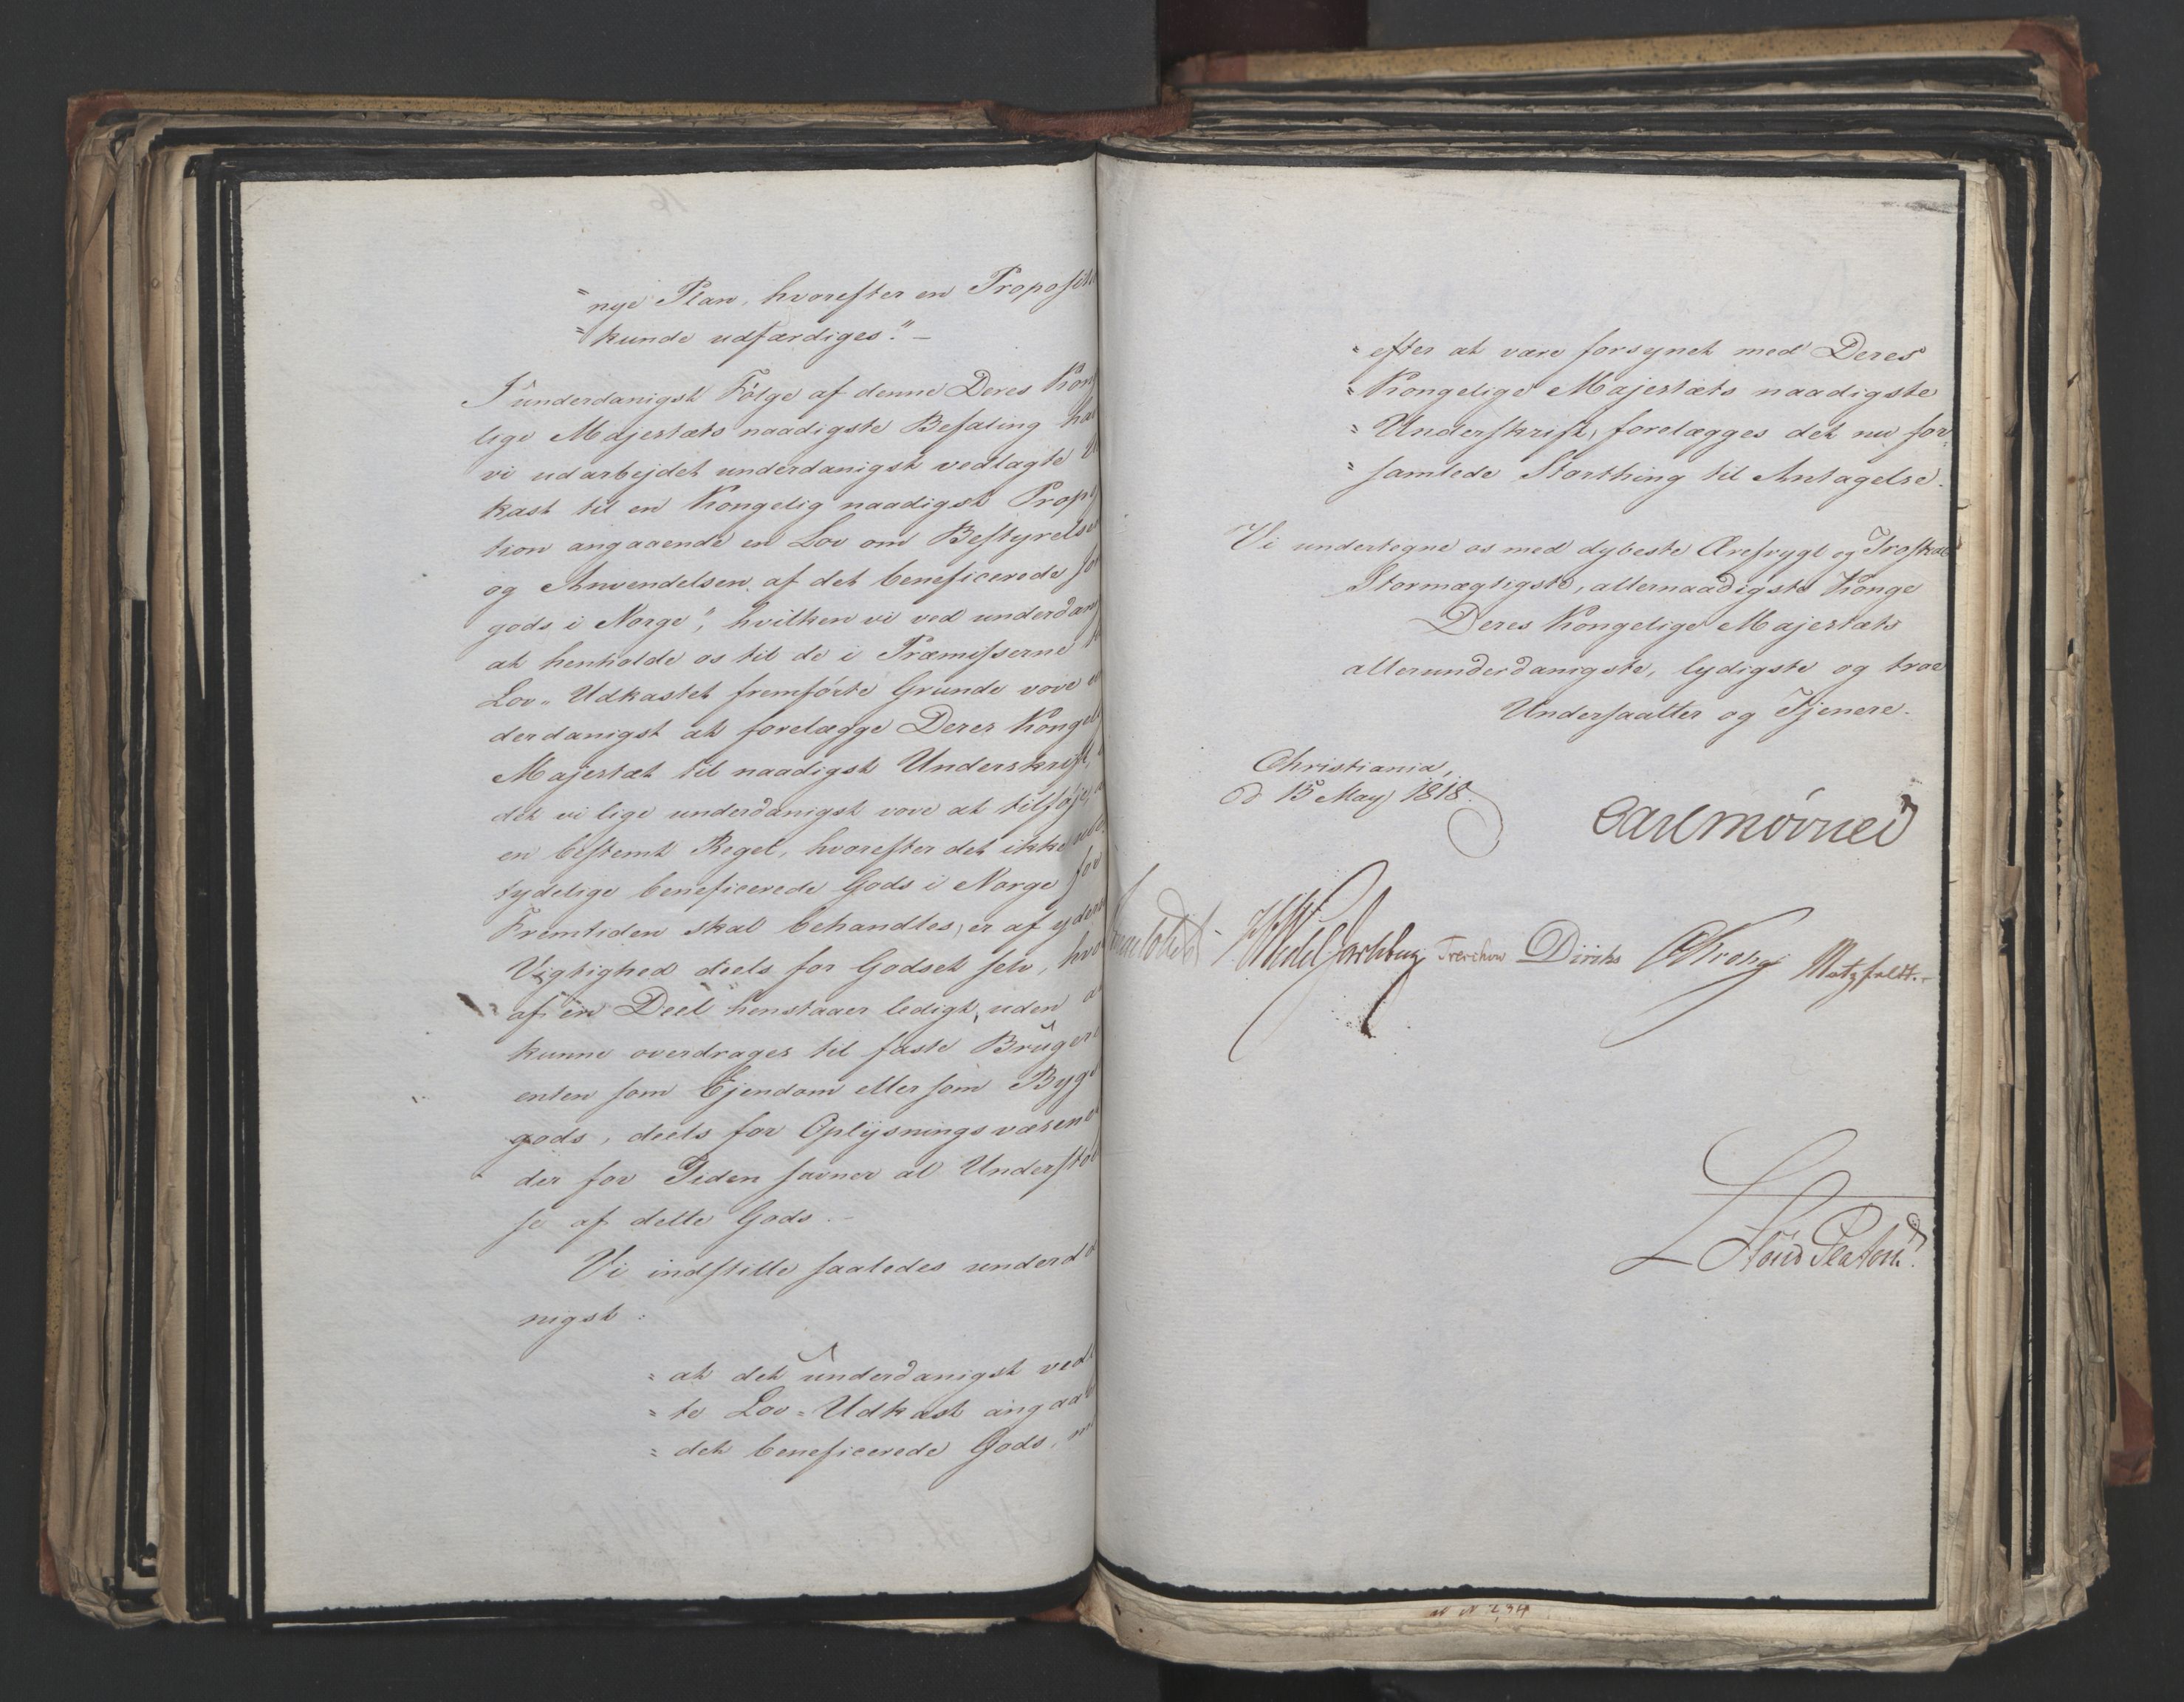 "nye Plan, hvorefter en Proposit
"kunde udfærdiges." —
I underdanigst Følge af denne Deres Kon
lige Majestæts naadigste Befaling ha
vi udarbejdet underdanigst vedlagte U
kast til en Kongelig naadigst Prop
tion angaaende en Lov om Bestyrelse
og Anvendelsen af det beneficerede Jor
gods i Norge", hvilken vi ved underdan
at henholde os til de i Præmisserne
Lov-Udkastet fremførte Grunde vove
derdanigst at forelægge Deres Kongel
Majestæt til naadigst Underskrift,
det vi lige underdanigst vove at tilføje,
en bestemt Regel, hvorefter det ikke
tydelige beneficerede Gods i Norge for
Fremtiden skal behandles, er af yders
Vigtighed deels for Godset selv, hvo
af en Deel henstaaer ledigt, uden a
kunne overdrages til faste Brugere
enten som Ejendom eller som Bygs
gods, deels for Oplysningsvæsene
der for Tiden savner al Understøt
se af dette Gods. —
Vi indstille saaledes underda
nigst:
"at det underdanigst vedl
"te Lov-Udkast angaae
"det beneficerede Gods,
"efter at være forsynet med Deres
"Kongelige Majestæts naadigste
"Underskrift, forelægges det nu for-
"samlede Storthing til Antagelse.
Vi undertegne os med dybeste Ærefrygt og Troskab
Stormægtigste, allernaadigste Konge
Deres Kongelige Majestæts
allerunderdanigste, lydigste og troe
Undersaatter og Tjenere.
Christiania,
d 15 May 1818.
Carl Mörner
Wedel Jarlsberg Treschow Diriks Krog Motzfeldt.
Hoüs Platou